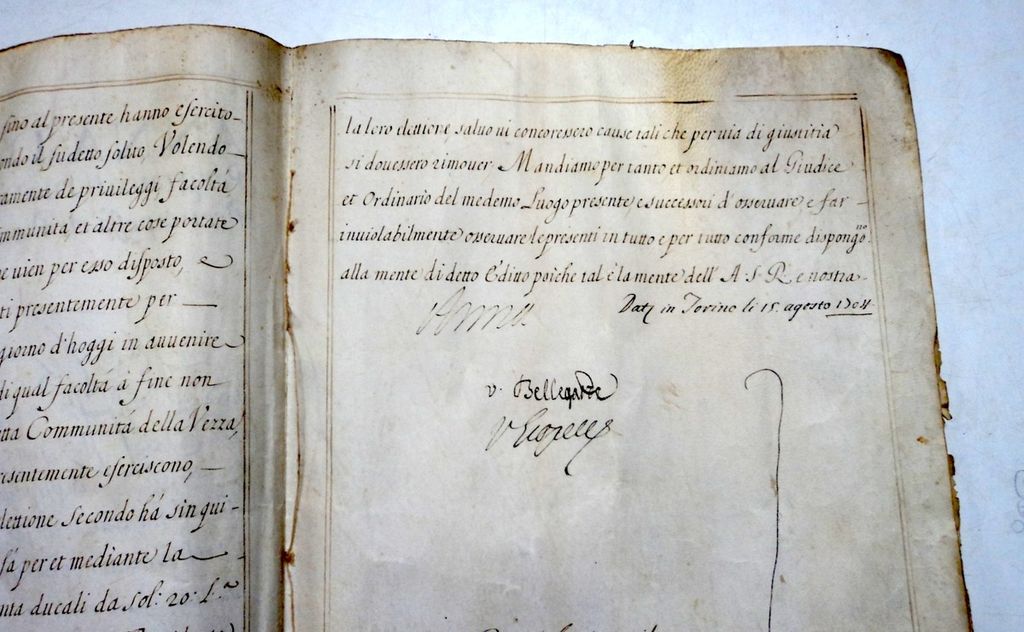 fino al presente hanno esercito
ondo il sudetto solito, Volendo
amente de privileggi, facoltá
mmunitá, et altre cose portate
e vien per esso disposto, e
ti presentemente per
giorno d'hoggi in auuenire
di qual facoltá á fine non
tta Communitá della Vezza,
resentemente eserciscono,
lettione secondo há sin qui
sá per et mediante la
nta ducali da sol: 20: L.ª
la loro elettione, saluo ui concoressero cause tali che per uia di giustitia
si douessero rimouer, Mandiamo per tanto et ordiniamo al Giudice
et Ordinario del medemo Luogo presente, e successori d'osseruare, e far
inuiolabilmente osseruare le presenti in tutto e per tutto conforme dispongono
alla mente di detto Editto poiche tal è la mente dell' A. S. R. e nostra
Dat in Torino li 15. agosto 1704
Anna
v. Bellegarde